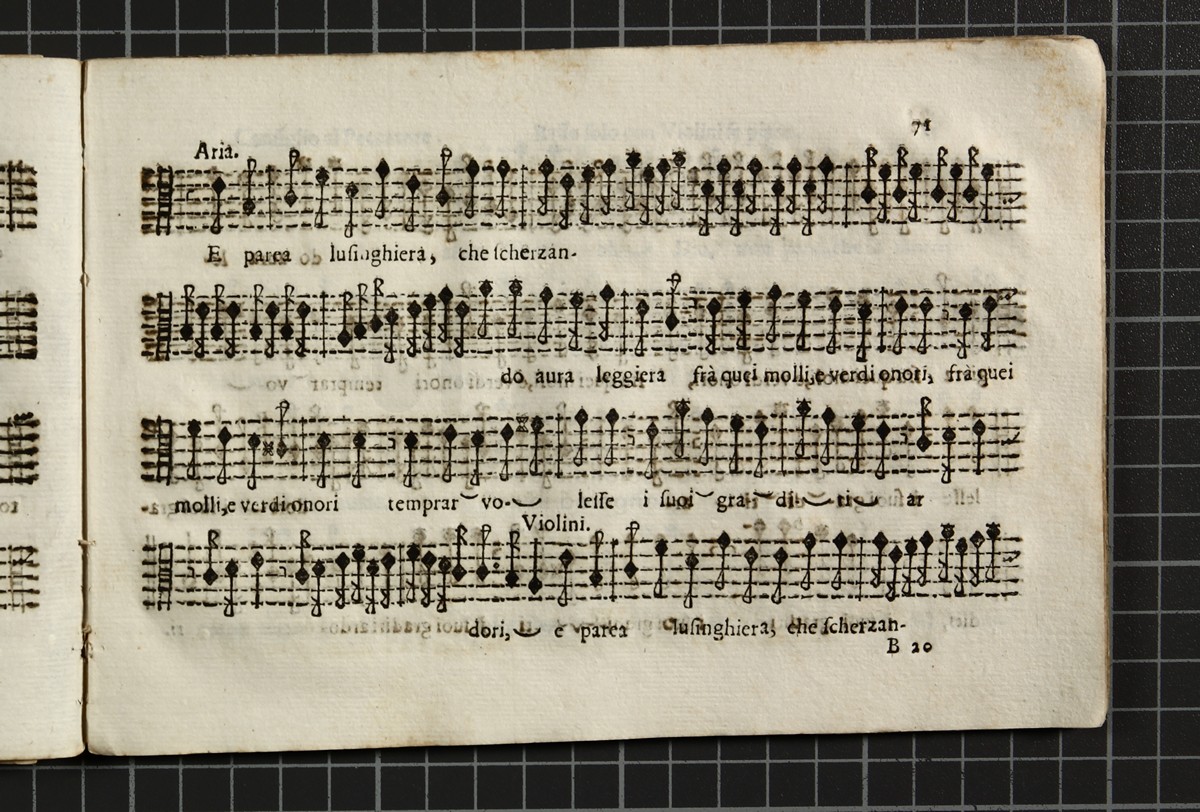 71
Aria.
E parea lusinghiera, che scherzan-
do aura leggiera frà quei molli,e verdi onori, frà quei
molli,e verdi onori temprar vo- lesse i suoi gra- di- ti ar
Violini.
dori, e parea lusinghiera, che scherzan-
B 20